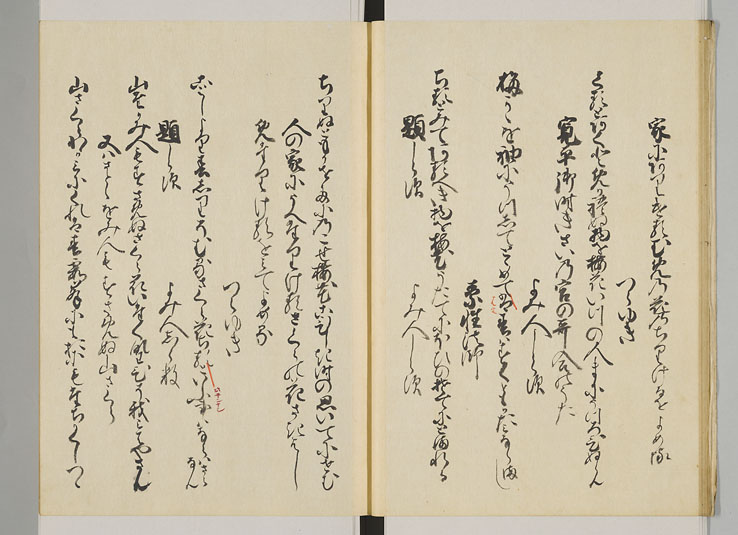 家にありける梅の花のちりけるをよめる
つらゆき
くるとあくとめかれぬ物を梅花いつの人まにうつろひぬらん
寛平御時きさいの宮の哥合のうた
よみ人しらす
梅かゝを袖にうつしてとめては春はすくともかたみならまし
素性法師
ちるとみてあるへき物を梅花うたてにほひの袖にとまれる
題しらす
よみ人しらす
ちりぬともかをたにのこせ梅花こひしき時の思いてにせむ
人の家にうへたりけるさくらの花さきはし
めたりけるをみてよめる
つらゆき
ことしより春しりそむるさくら花ちるといふ事はならはさらなん
題しらす
よみ人しらす
山たかみ人もすさめぬさくら花いたくなわひそ我みはやさん
又はさとゝをみ人もすさめぬ山さくら
山さくらわか見にくれは春霞峯にもおにもたちかくしつゝ